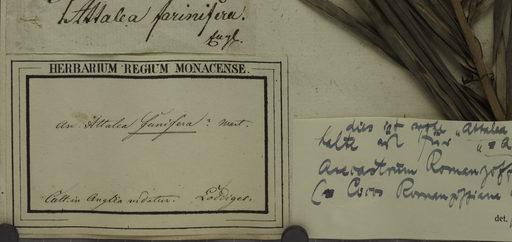 Attalea farinifera.
Engl.
HERBARIUM REGIUM MONACENSE.
An Attalea funifera? Mart.
Cult. in Anglia videtur. Loddiges.
dies ist "Attalea
halte es für
Arecastrum Romanzoff
(= Cocos Romanzoffiana
det.